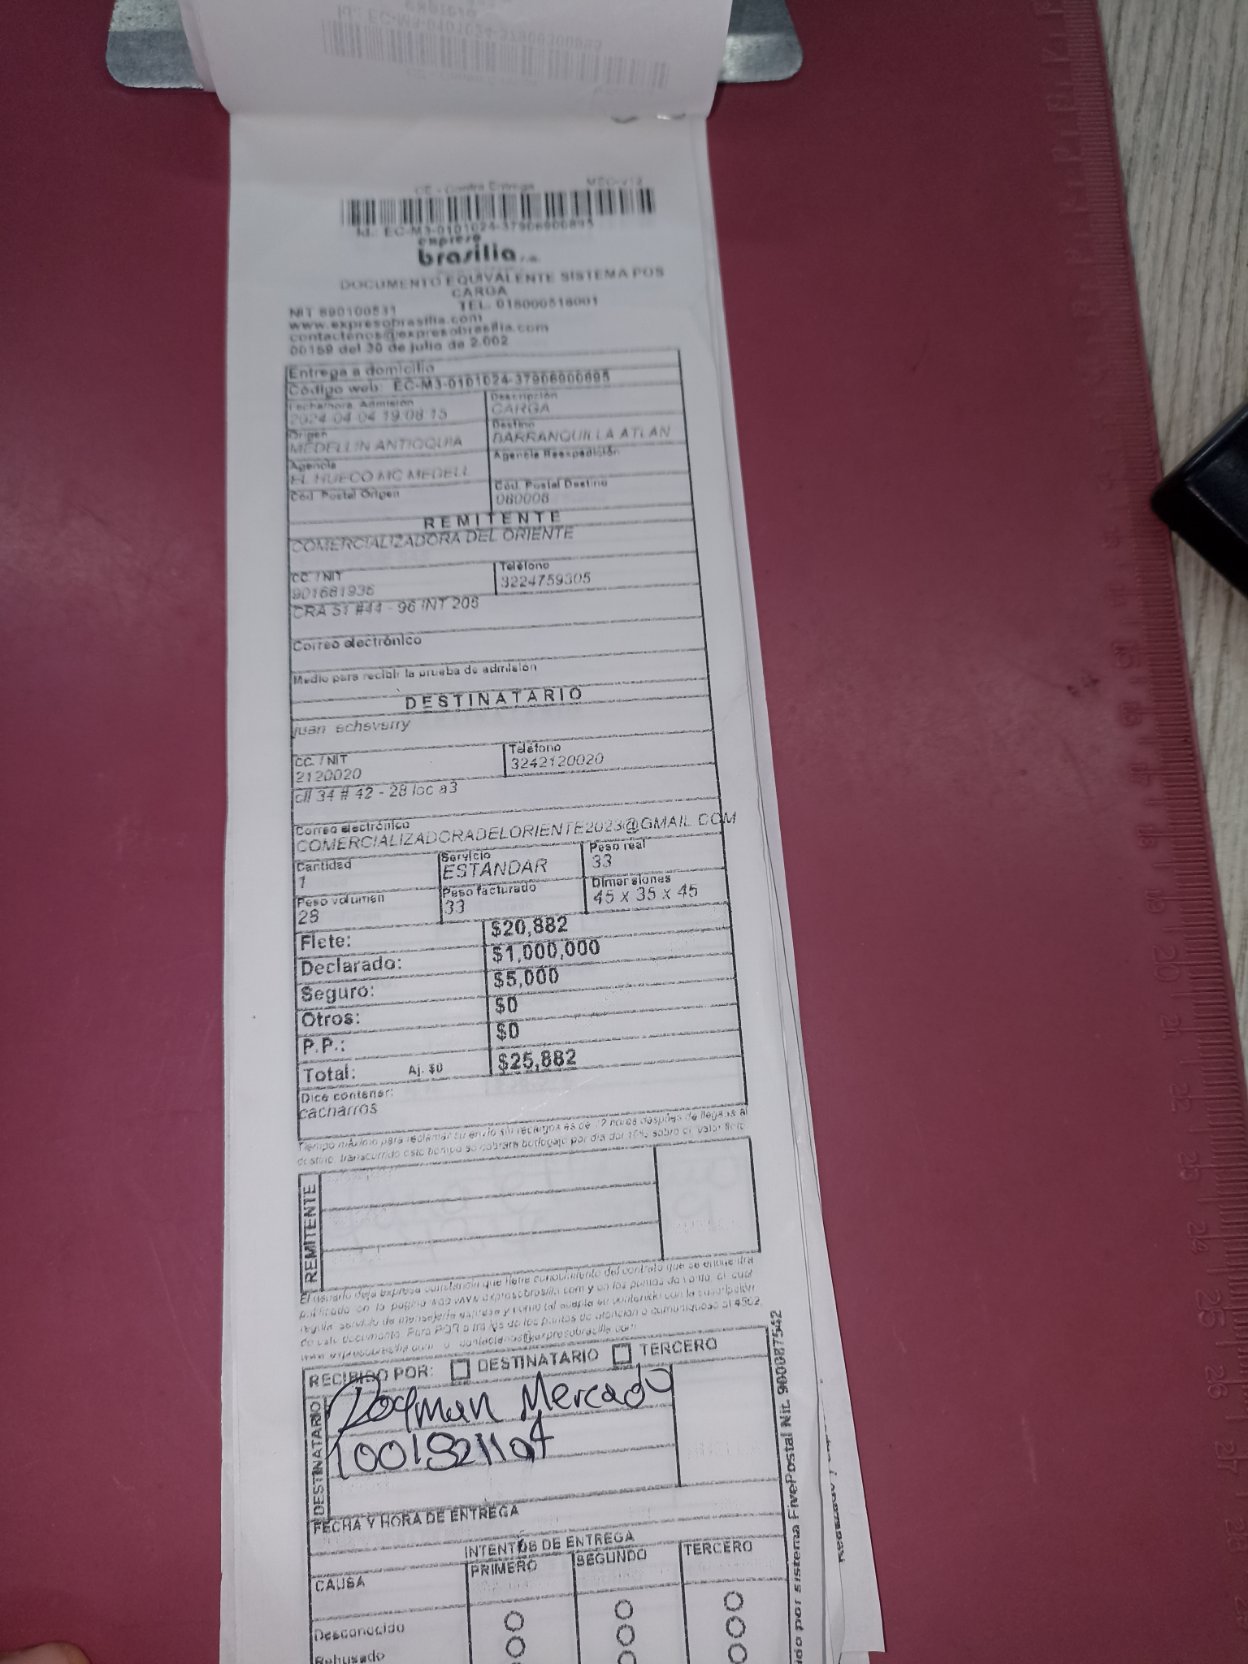 CE - Contra Entrega
Id.: EC-M3-0101024-37906900695
expreso
brasilia s.a.
DOCUMENTO EQUIVALENTE SISTEMA POS
CARGA
NIT 890100531 TEL. 018000518001
www.expresobrasilia.com
contactenos@expresobrasilia.com
00169 del 30 de julio de 2.002
Entrega a domicilio
Código web: EC-M3-0101024-37906900695
Fecha/hora Admisión Descripción
2024-04-04 19:08:15 CARGA
Origen Destino
MEDELLIN ANTIOQUIA BARRANQUILLA ATLAN
Agencia Agencia Reexpedición
EL HUECO MC MEDELL
Cód. Postal Origen Cód. Postal Destino
080008
REMITENTE
COMERCIALIZADORA DEL ORIENTE
CC. / NIT Teléfono
901681936 3224759305
CRA 51 #44 - 96 INT 205
Correo electrónico
Medio para recibir la prueba de admisión
DESTINATARIO
juan echeverry
CC. / NIT Teléfono
2120020 3242120020
cll 34 # 42 - 28 loc a3
Correo electrónico
COMERCIALIZADORADELORIENTE2023@GMAIL.COM
Cantidad Servicio Peso real
1 ESTANDAR 33
Peso volumen Peso facturado Dimensiones
28 33 45 x 35 x 45
Flete: $20,882
Declarado: $1,000,000
Seguro: $5,000
Otros: $0
P.P.: $0
Total: Aj. $0 $25,882
Dice contener:
cacharros
Tiempo máximo para reclamar su envío sin recargos es de 72 horas después de llegar al
destino, transcurrido este tiempo se cobrara bodegaje por día del 10% sobre el valor flete
REMITENTE
El usuario deja expresa constancia que tiene conocimiento del contrato que se encuentra
publicado en la página web www.expresobrasilia.com y en los puntos de venta, el cual
regula servicio de mensajería expresa y como tal acepta su contenido con la suscripción
de este documento. Para PQR a través de los puntos de atención o comuníquese al
www.expresobrasilia.com o contactenos@expresobrasilia.com
RECIBIDO POR: DESTINATARIO TERCERO
DESTINATARIO
Mercado
FECHA Y HORA DE ENTREGA
INTENTOS DE ENTREGA
CAUSA PRIMERO SEGUNDO TERCERO
Desconocido
Rehusado
do por sistema FivePostal Nit. 900087542